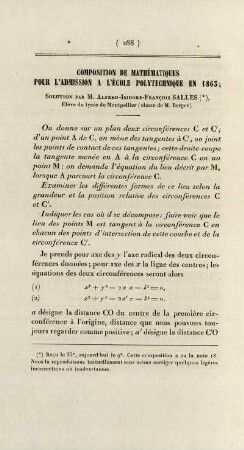 ( 268 )
COMPOSITION DE MATHÉMATIQUES
POUR L'ADMISSION A L'ÉCOLE POLYTECHNIQUE EN 1863;
SOLUTION PAR M. ALFRED-ISIDORE-FRANÇOIS SALLES (*),
Élève du lycée de Montpellier (classe de M. Berger)
On donne sur un plan deux circonférences C et C'; 
d'un point A de C, on mène des tangentes à C', on joint
les points de contact de ces tangentes; cette droite coupe
la tangente menée en A à la circonférence C en un
point M: on demande l'équation du lieu décrit par M,
lorsque A parcourt la circonférence C.
Examiner les différentes formes de ce lieu selon la
grandeur et la position relative des circonférences C
et C'.
Indiquer les cas où il se décompose: faire voir que le
lieu des points M est tangent à la circonférence C en
chacun des points d'intersection de cette courbe et de la
circonférence C'.
Je prends pour axe des y l'axe radical des deux circon-
férences données; pour axe des x la ligne des centres; les
équations des deux circonférences seront alors
(1) x² + y² − 2α x − k² = 0,
(2) x² + y² − 2α' x − k² = 0.
α désigne la distance CO du centre de la première circon-
férence à l'origine, distance que nous pouvons tou-
jours regarder comme positive; α' désigne la distance C'O
(*) Reçu le 35e, aujourd'hui le 9e. Cette composition a eu la note 18.
Nous la reproduisons textuellement sans même corriger quelques légères
incorrections ou inadvertances.